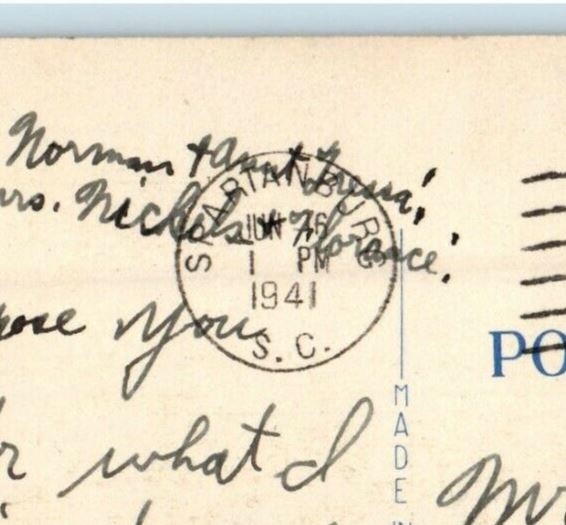 Norman + Aunt
rs. Nichols + Florence,
SPARTANBURG
JUN 16
1 PM
1941
S. C.
pose you
what I
PO
MADE IN